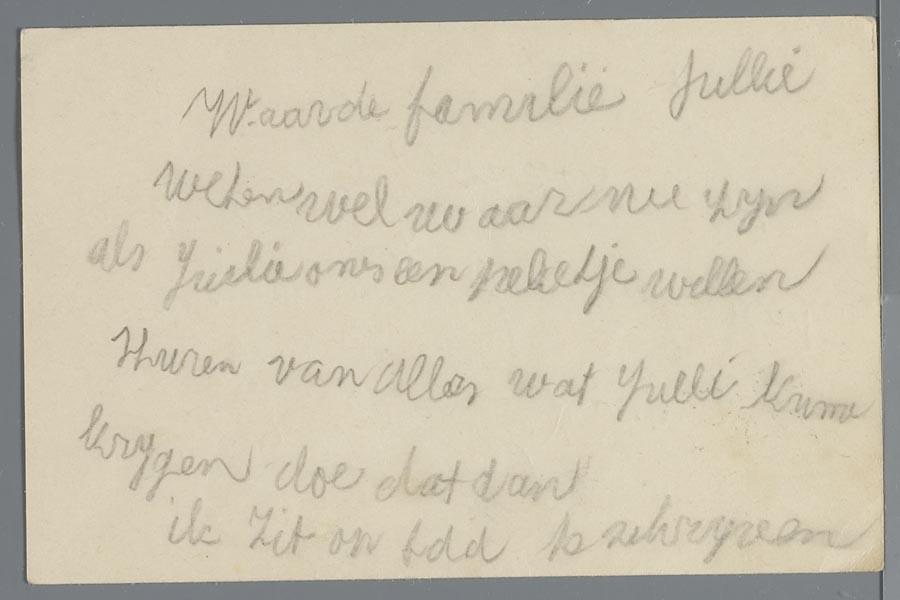 Waarde familie Jullie
weten wel waar we zyn
als Jullie ons een paketje willen
sturen van alles wat Julli kunne
krygen doe dat dan
ik zit op bdd te schryven